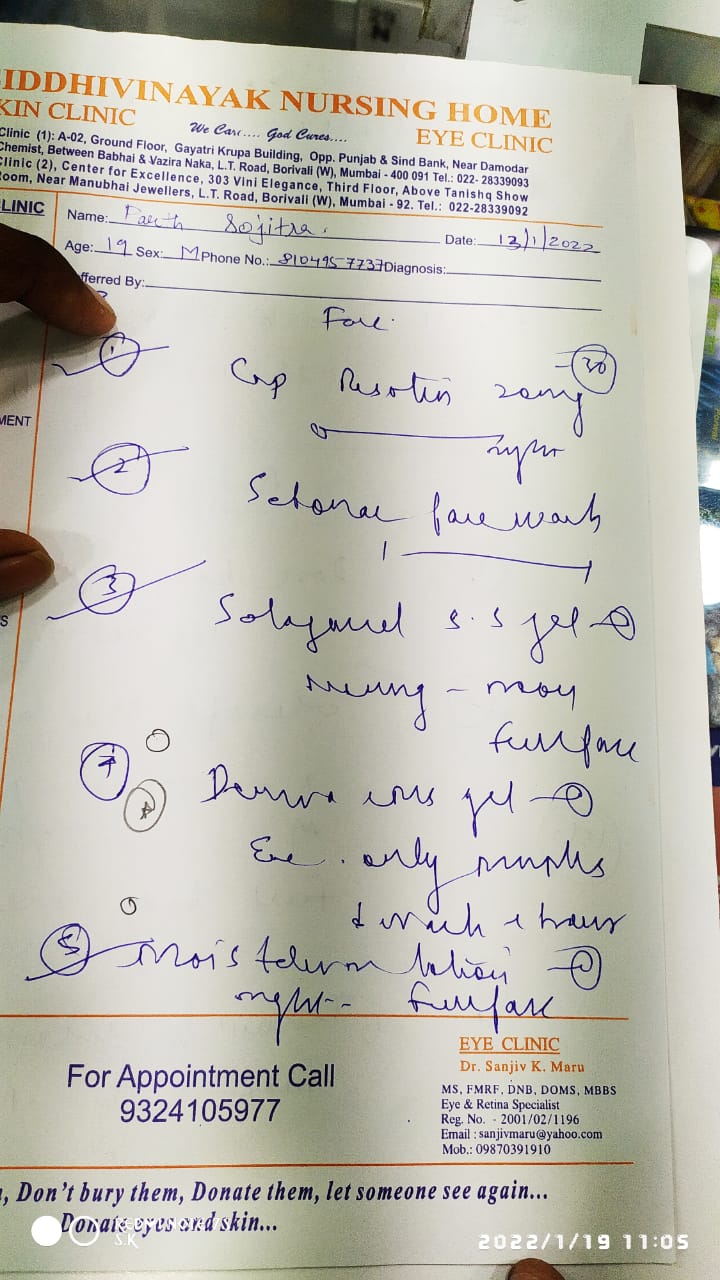 SIDDHIVINAYAK NURSING HOME
KIN CLINIC
We Care.... God Cures....
EYE CLINIC
Clinic (1): A-02, Ground Floor, Gayatri Krupa Building, Opp. Punjab & Sind Bank, Near Damodar
Chemist, Between Babhai & Vazira Naka, L.T. Road, Borivali (W), Mumbai - 400 091 Tel.: 022- 28339093
Clinic (2), Center for Excellence, 303 Vini Elegance, Third Floor, Above Tanishq Show
oom, Near Manubhai Jewellers, L.T. Road, Borivali (W), Mumbai - 92. Tel.: 022-28339092
CLINIC
Name: Sojitra. Date: 13/1/2022
Age: 19 Sex: M Phone No.: 8104957737 Diagnosis:
fferred By:
Face
1 Cap 20mg 30
night
MENT
2 face wash
1 1
3 S.S gel
S
morning -
full face
4 gel
Eve. only pimples
& wash
5 lotion
night -- full face
For Appointment Call
9324105977
EYE CLINIC
Dr. Sanjiv K. Maru
MS, FMRF, DNB, DOMS, MBBS
Eye & Retina Specialist
Reg. No. - 2001/02/1196
Email : sanjivmaru@yahoo.com
Mob.: 09870391910
, Don't bury them, Donate them, let someone see again...
Donate eyes and skin...
S.K
2022/1/19 11:05